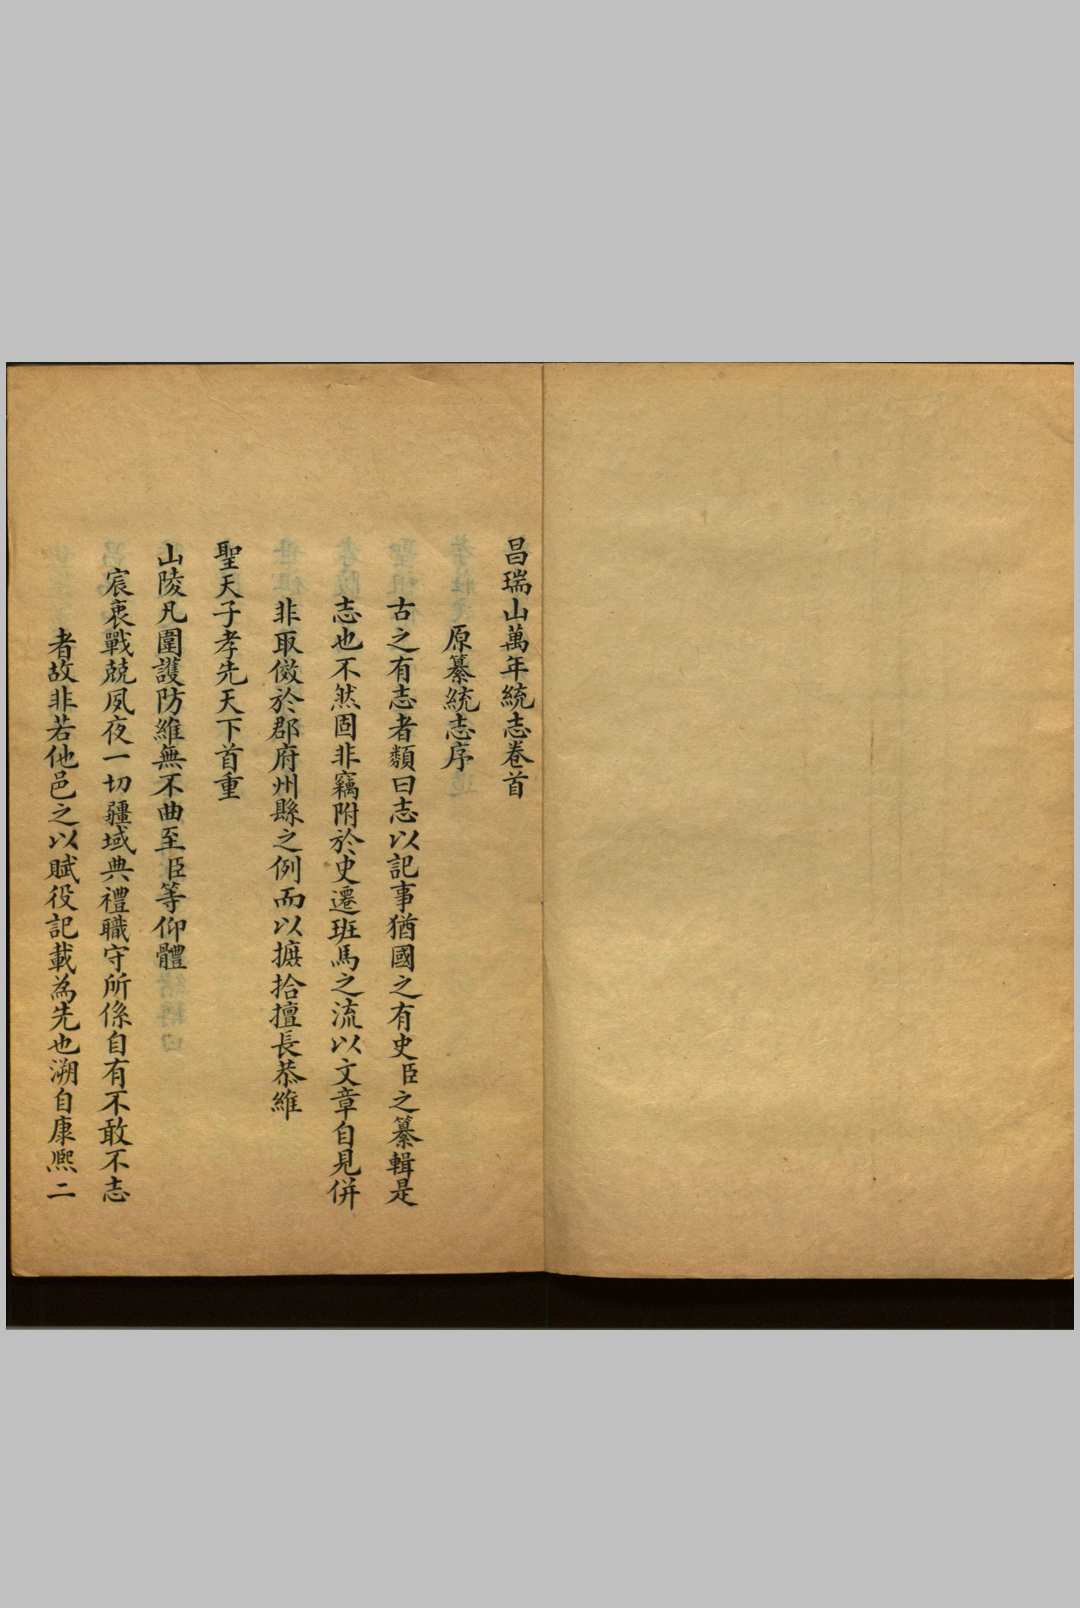 昌瑞山萬年統志卷首
原纂統志序
古之有志者纇曰志以記事猶國之有史臣之纂輯是
志也不然固非竊附於史遷班馬之流以文章自見併
非取倣於郡府州縣之例而以摭拾擅長恭維
聖天子孝先天下首重
山陵凡圍護防維無不曲至臣等仰體
宸衷戰兢夙夜一切疆域典禮職守所係自有不敢不志
者故非若他邑之以賦役記載為先也溯自康熙二